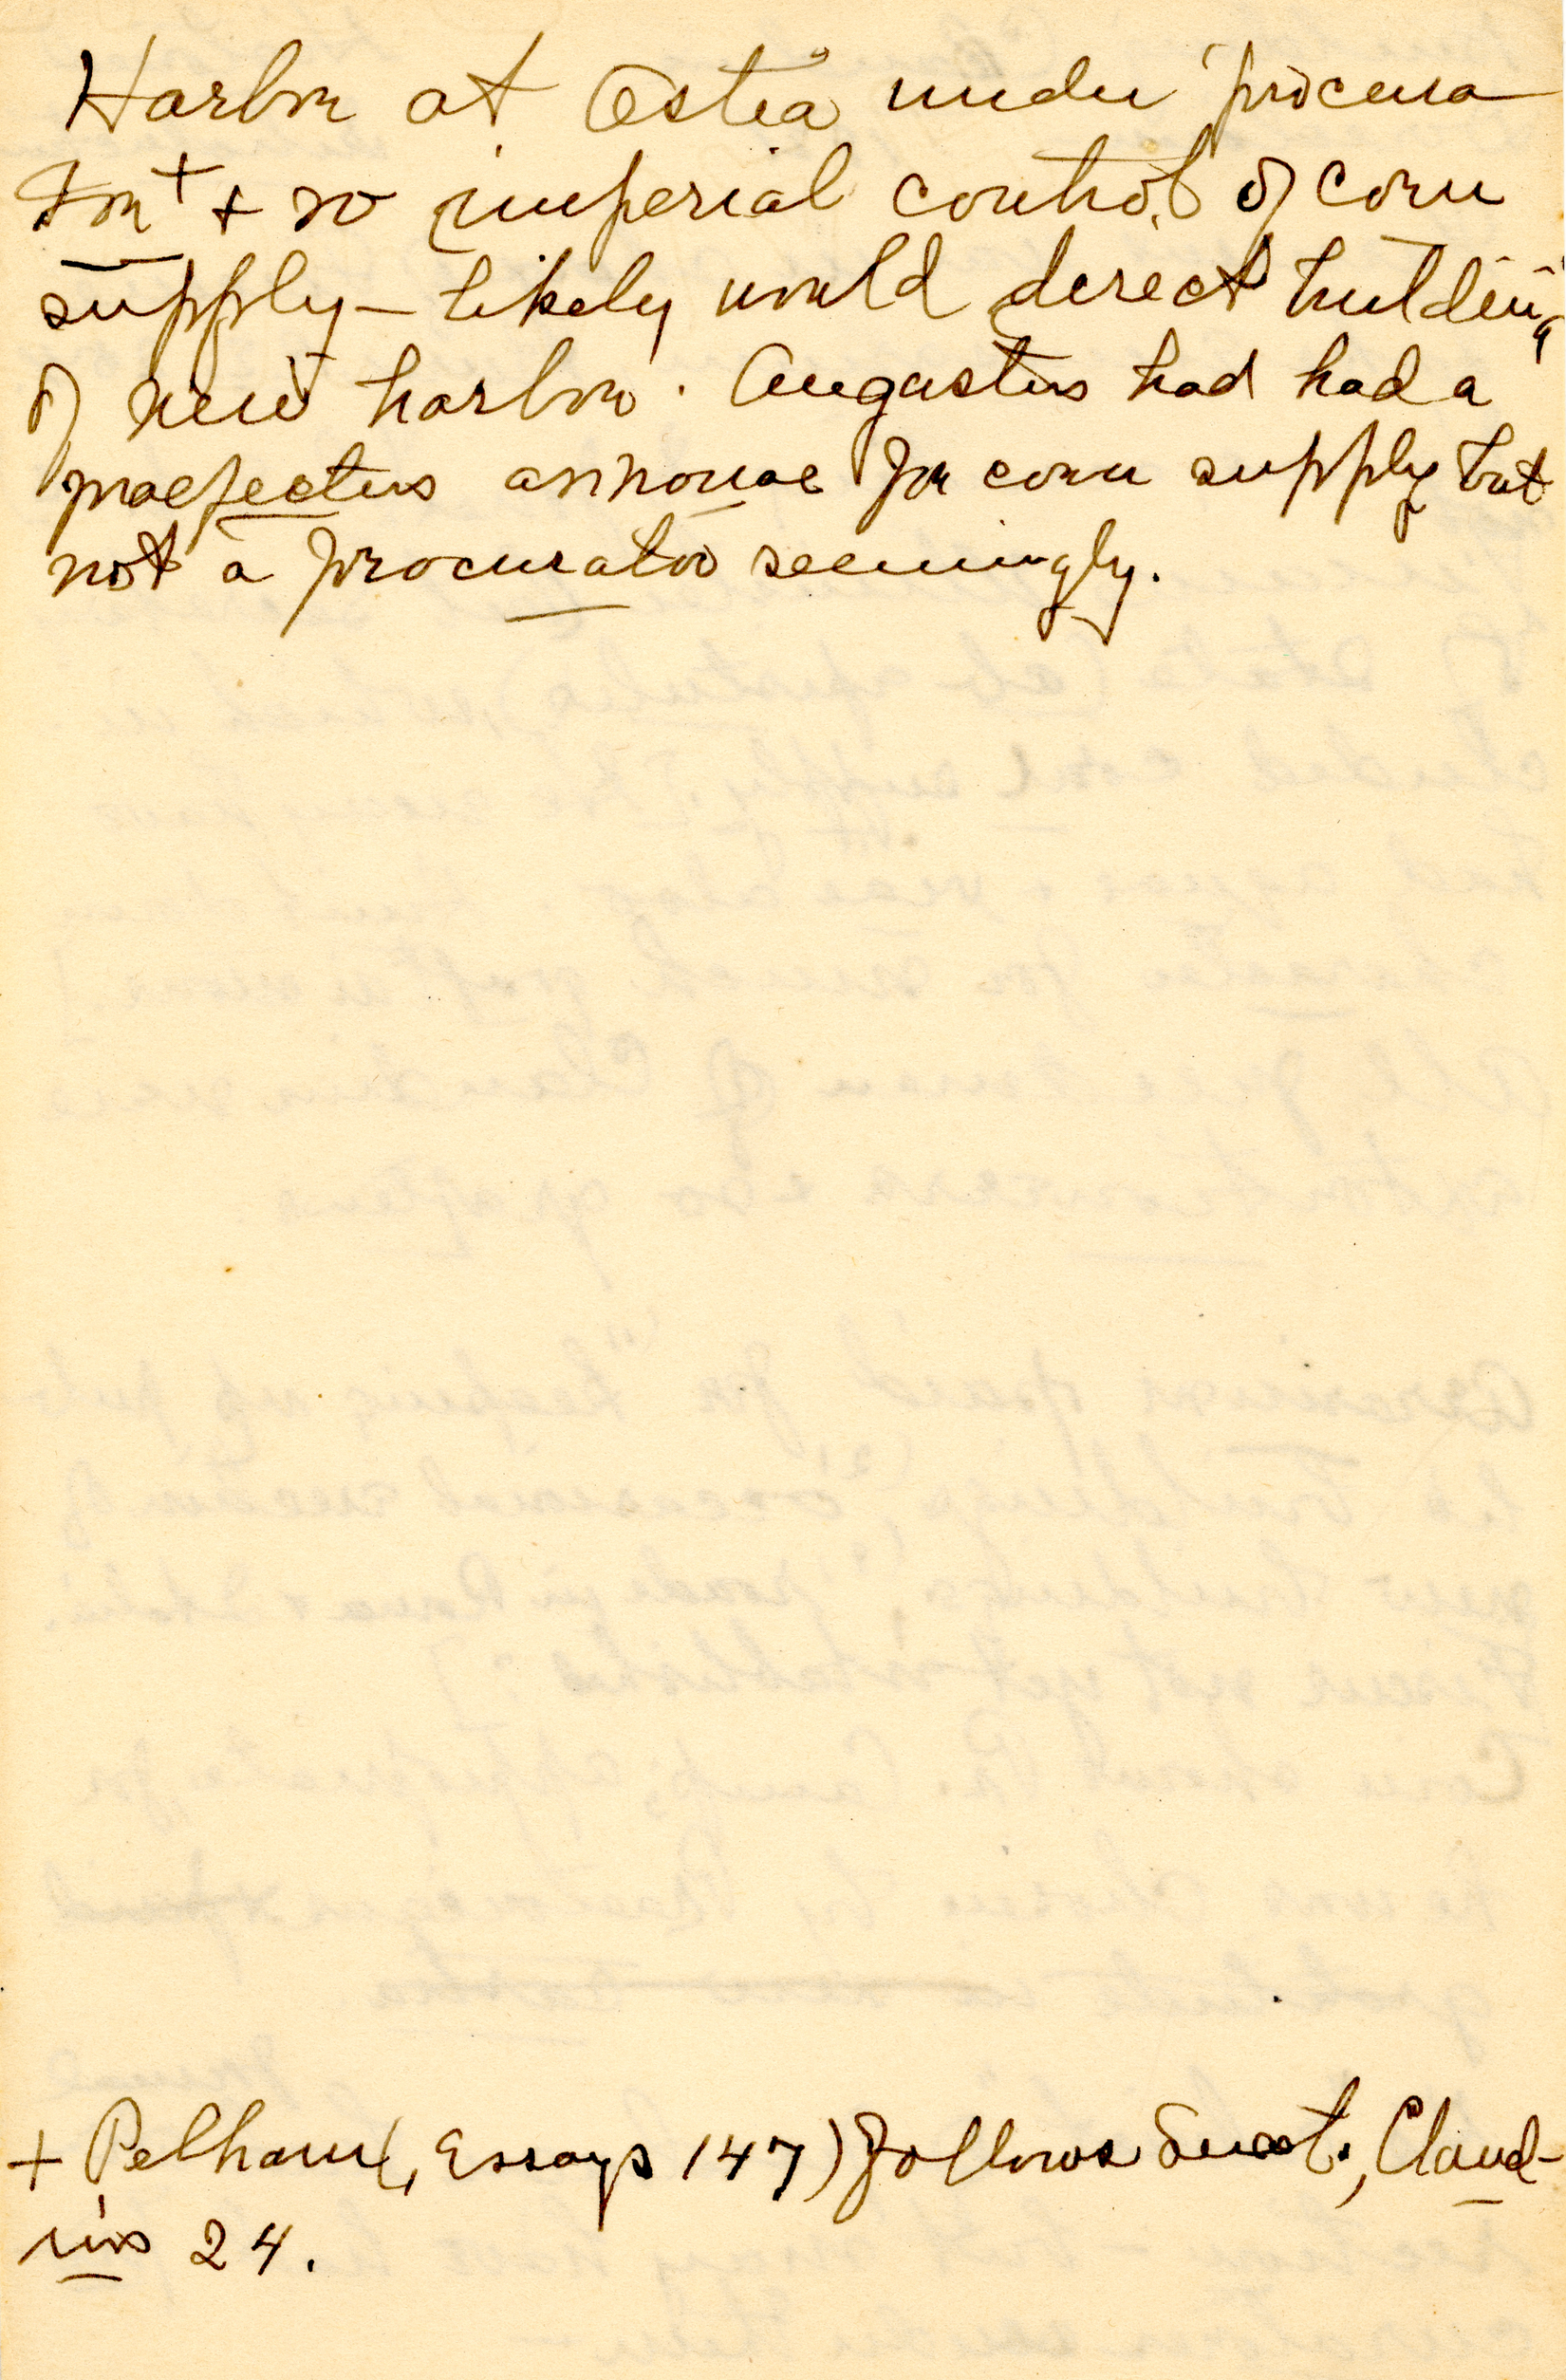 Harbor at Ostia under procura
tor+ + so imperial control of corn
supply – likely would direct building
of new harbor. Augustus had had a
praefectus annonae for corn supply but
not a procurator seemingly.
+ Pelham (, Essays 147) follows Suet., Claud-
ius 24.